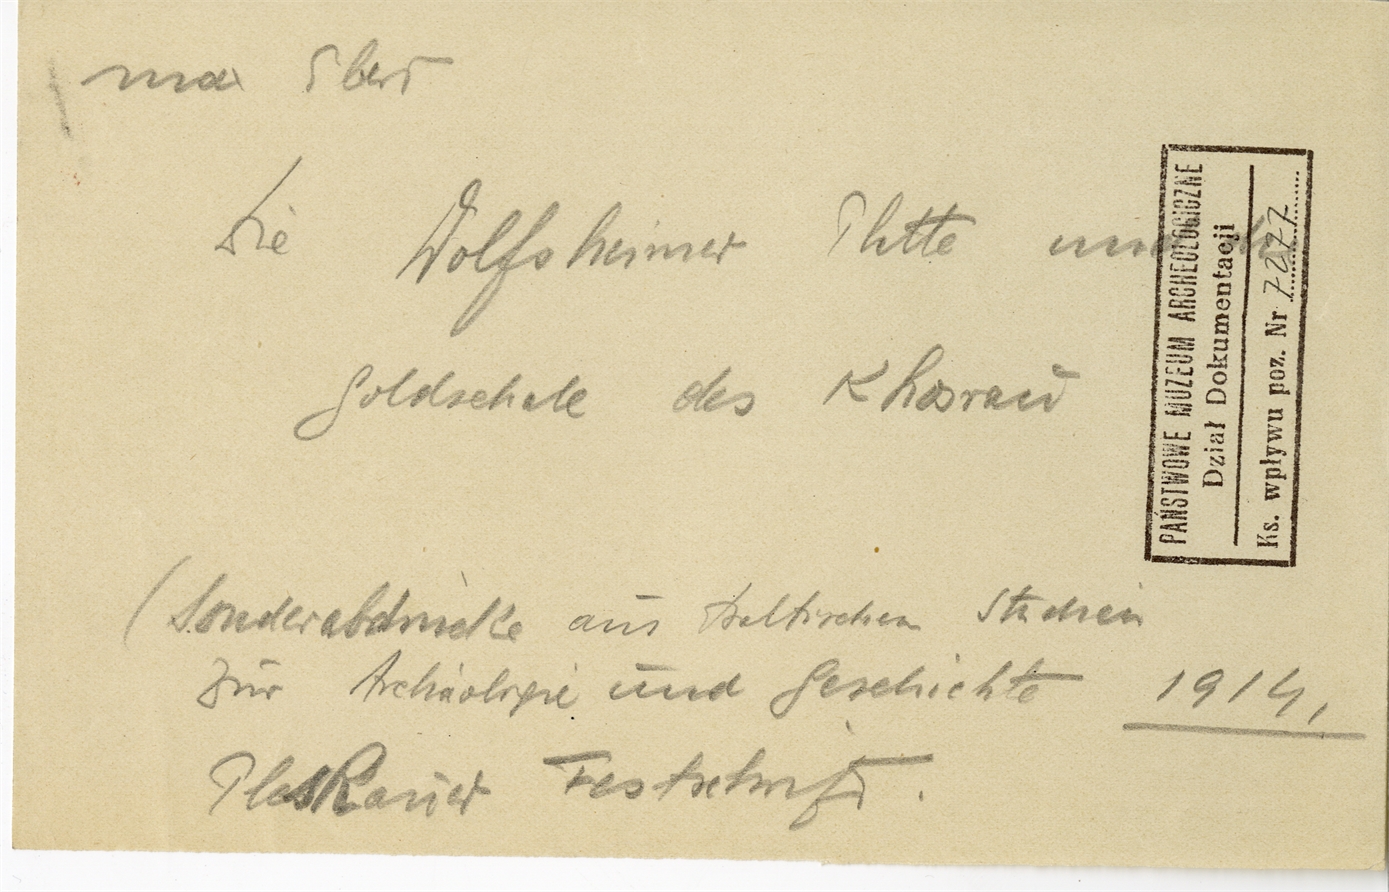 max Ebert
Die Wolfsheimer Platte und die
Goldschale des Khosrau
(Sonderabdrücke aus Baltischen Studien
zur Archäologie und Geschichte 1914,
Pleskauer Festschrift.
PAŃSTWOWE MUZEUM ARCHEOLOGICZNE
Dział Dokumentacji
Ks. wpływu poz. Nr 7277